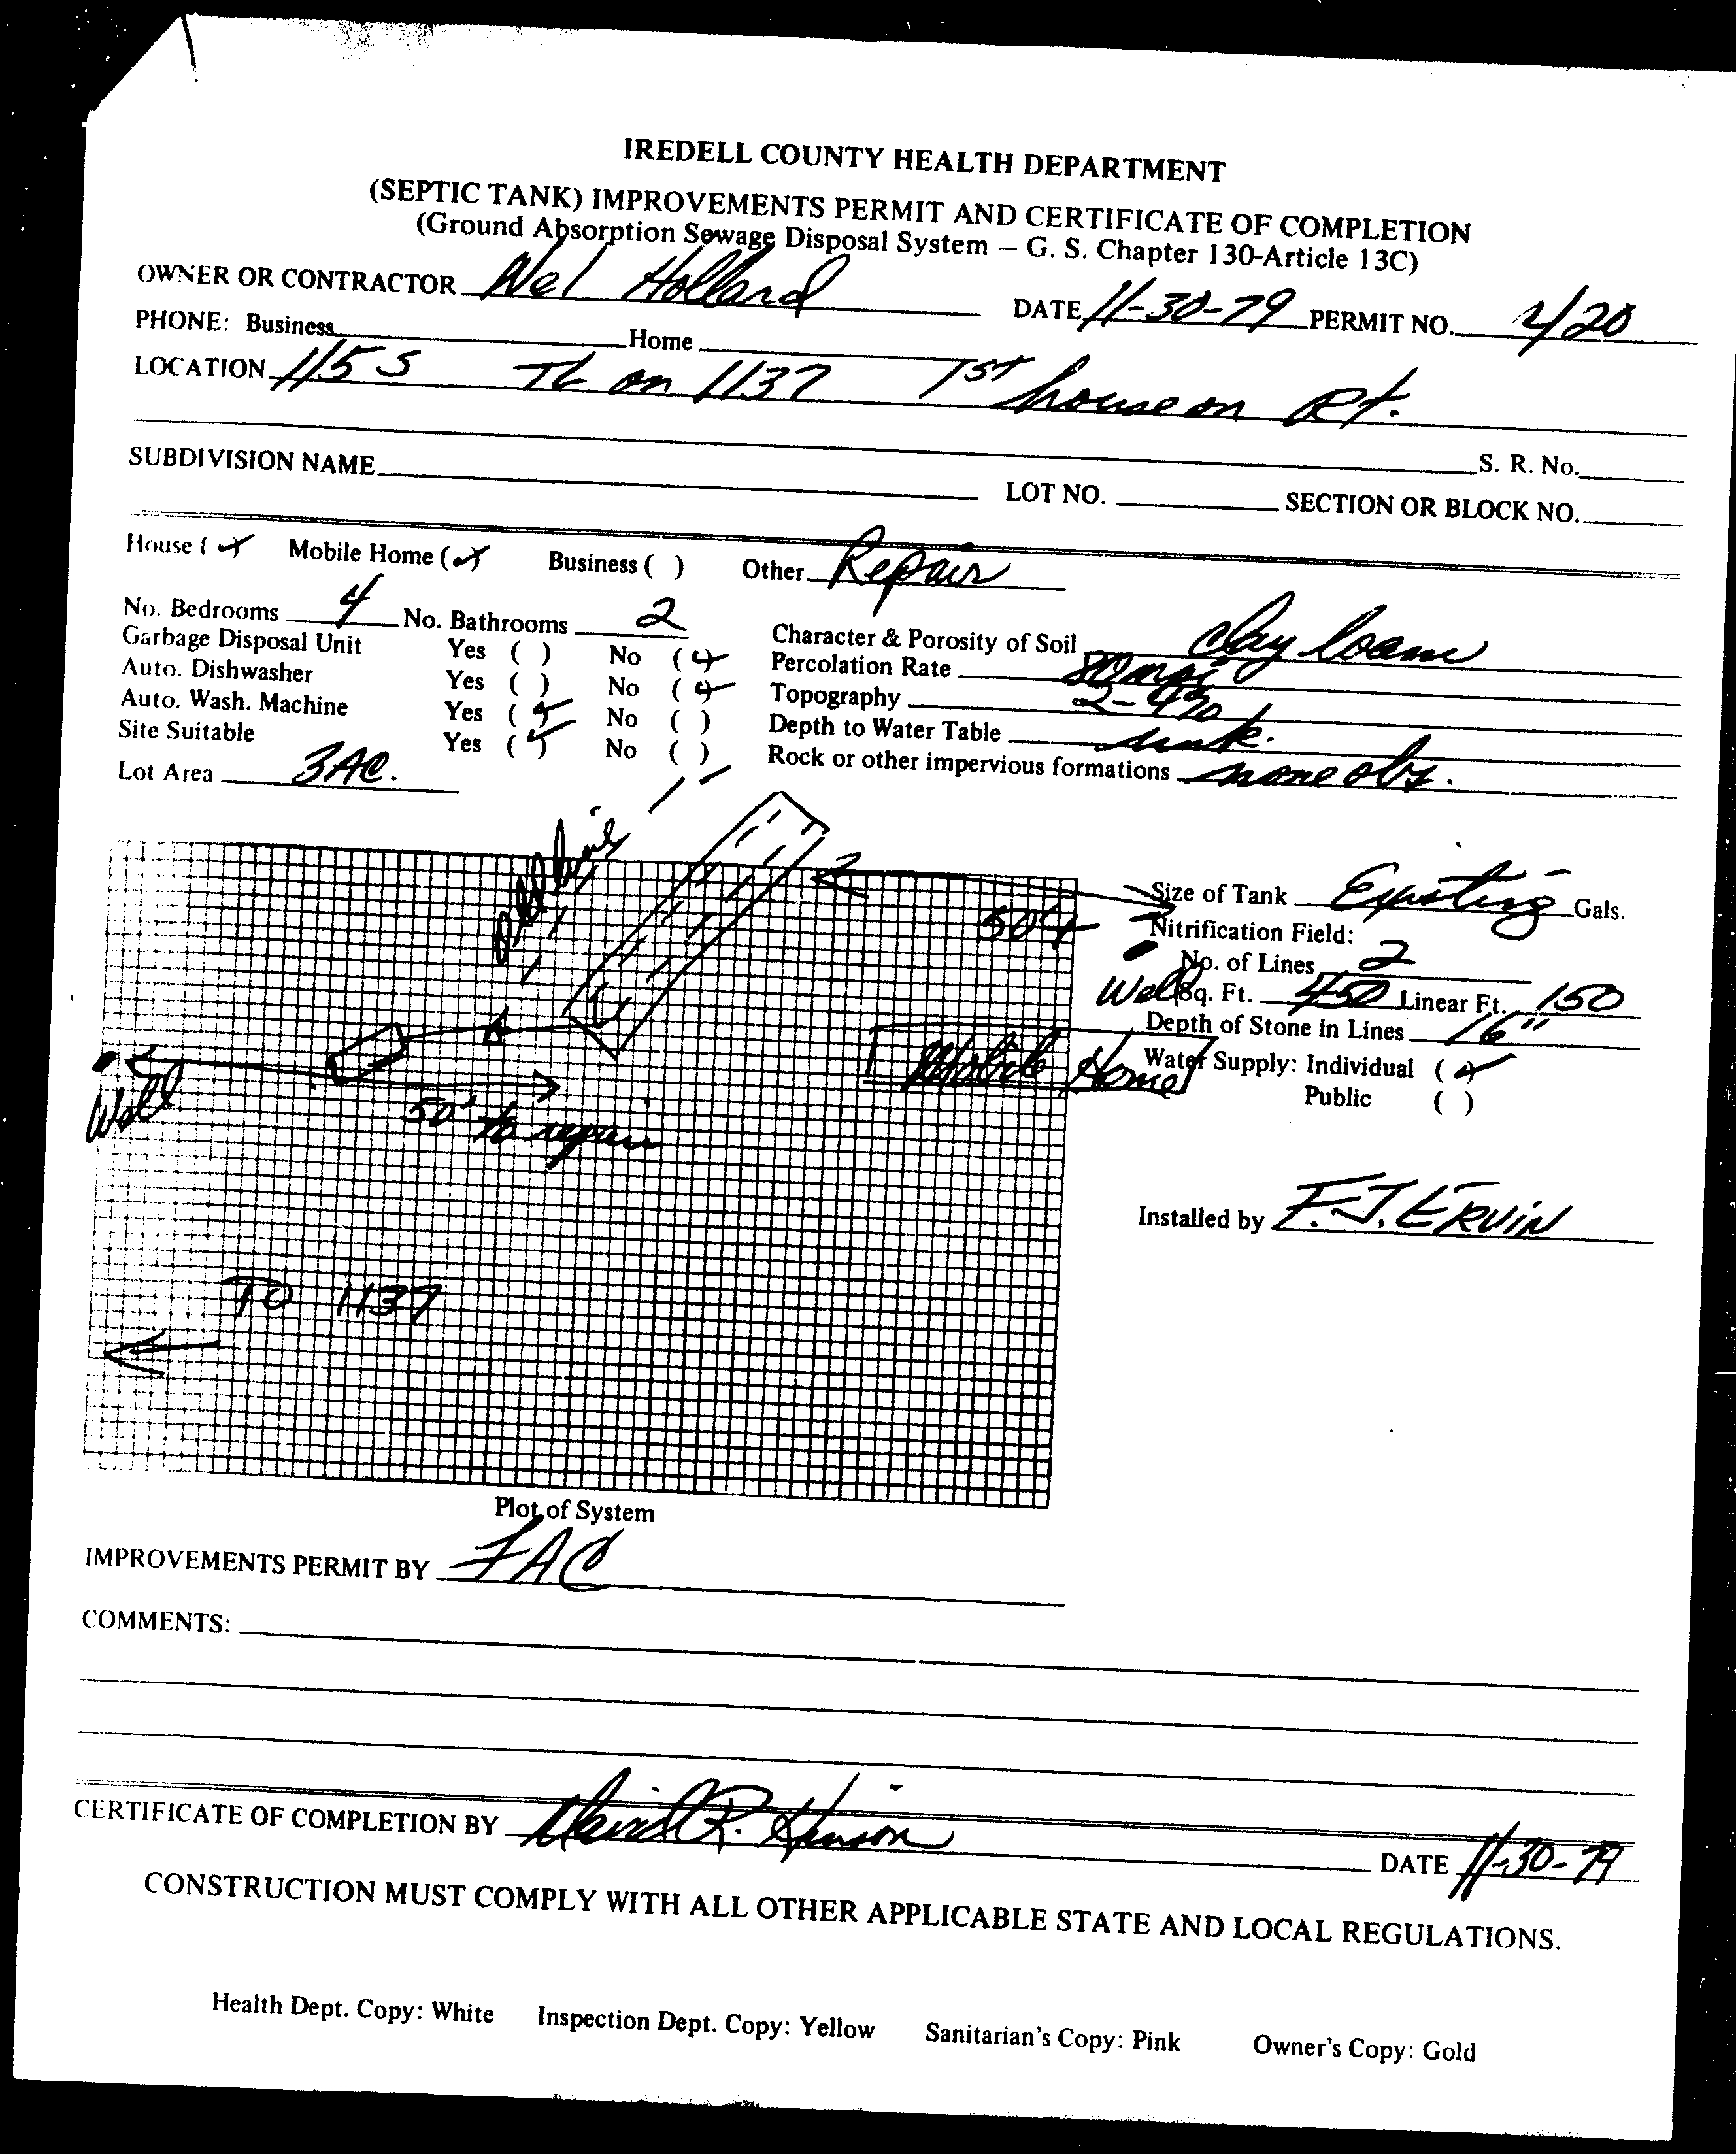 IREDELL COUNTY HEALTH DEPARTMENT
(SEPTIC TANK) IMPROVEMENTS PERMIT AND CERTIFICATE OF COMPLETION
(Ground Absorption Sewage Disposal System – G. S. Chapter 130-Article 13C)
OWNER OR CONTRACTOR Wel Holland DATE 11-30-79 PERMIT NO. 4/20
PHONE: Business Home
LOCATION 115 S TL on 1137 1st house on Rt.
S. R. No.
SUBDIVISION NAME LOT NO. SECTION OR BLOCK NO.
House (✓) Mobile Home (✓) Business ( ) Other Repair
No. Bedrooms 4 No. Bathrooms 2
Garbage Disposal Unit Yes ( ) No (✓)
Auto. Dishwasher Yes ( ) No (✓)
Auto. Wash. Machine Yes (✓) No ( )
Site Suitable Yes (✓) No ( )
Lot Area 3AC.
Character & Porosity of Soil clay loam
Percolation Rate 80 mpi
Topography 2-4%
Depth to Water Table unk.
Rock or other impervious formations none obs.
old line
50'+
Well
Mobile Home
Well
50' to repair
TO 1137
Size of Tank Existing Gals.
Nitrification Field:
No. of Lines 2
Sq. Ft. 450 Linear Ft. 150
Depth of Stone in Lines 16"
Water Supply: Individual (✓)
Public ( )
Installed by F.J. ERVIN
Plot of System
IMPROVEMENTS PERMIT BY FAC
COMMENTS:
CERTIFICATE OF COMPLETION BY David R. Hinson
DATE 11-30-79
CONSTRUCTION MUST COMPLY WITH ALL OTHER APPLICABLE STATE AND LOCAL REGULATIONS.
Health Dept. Copy: White Inspection Dept. Copy: Yellow Sanitarian's Copy: Pink Owner's Copy: Gold